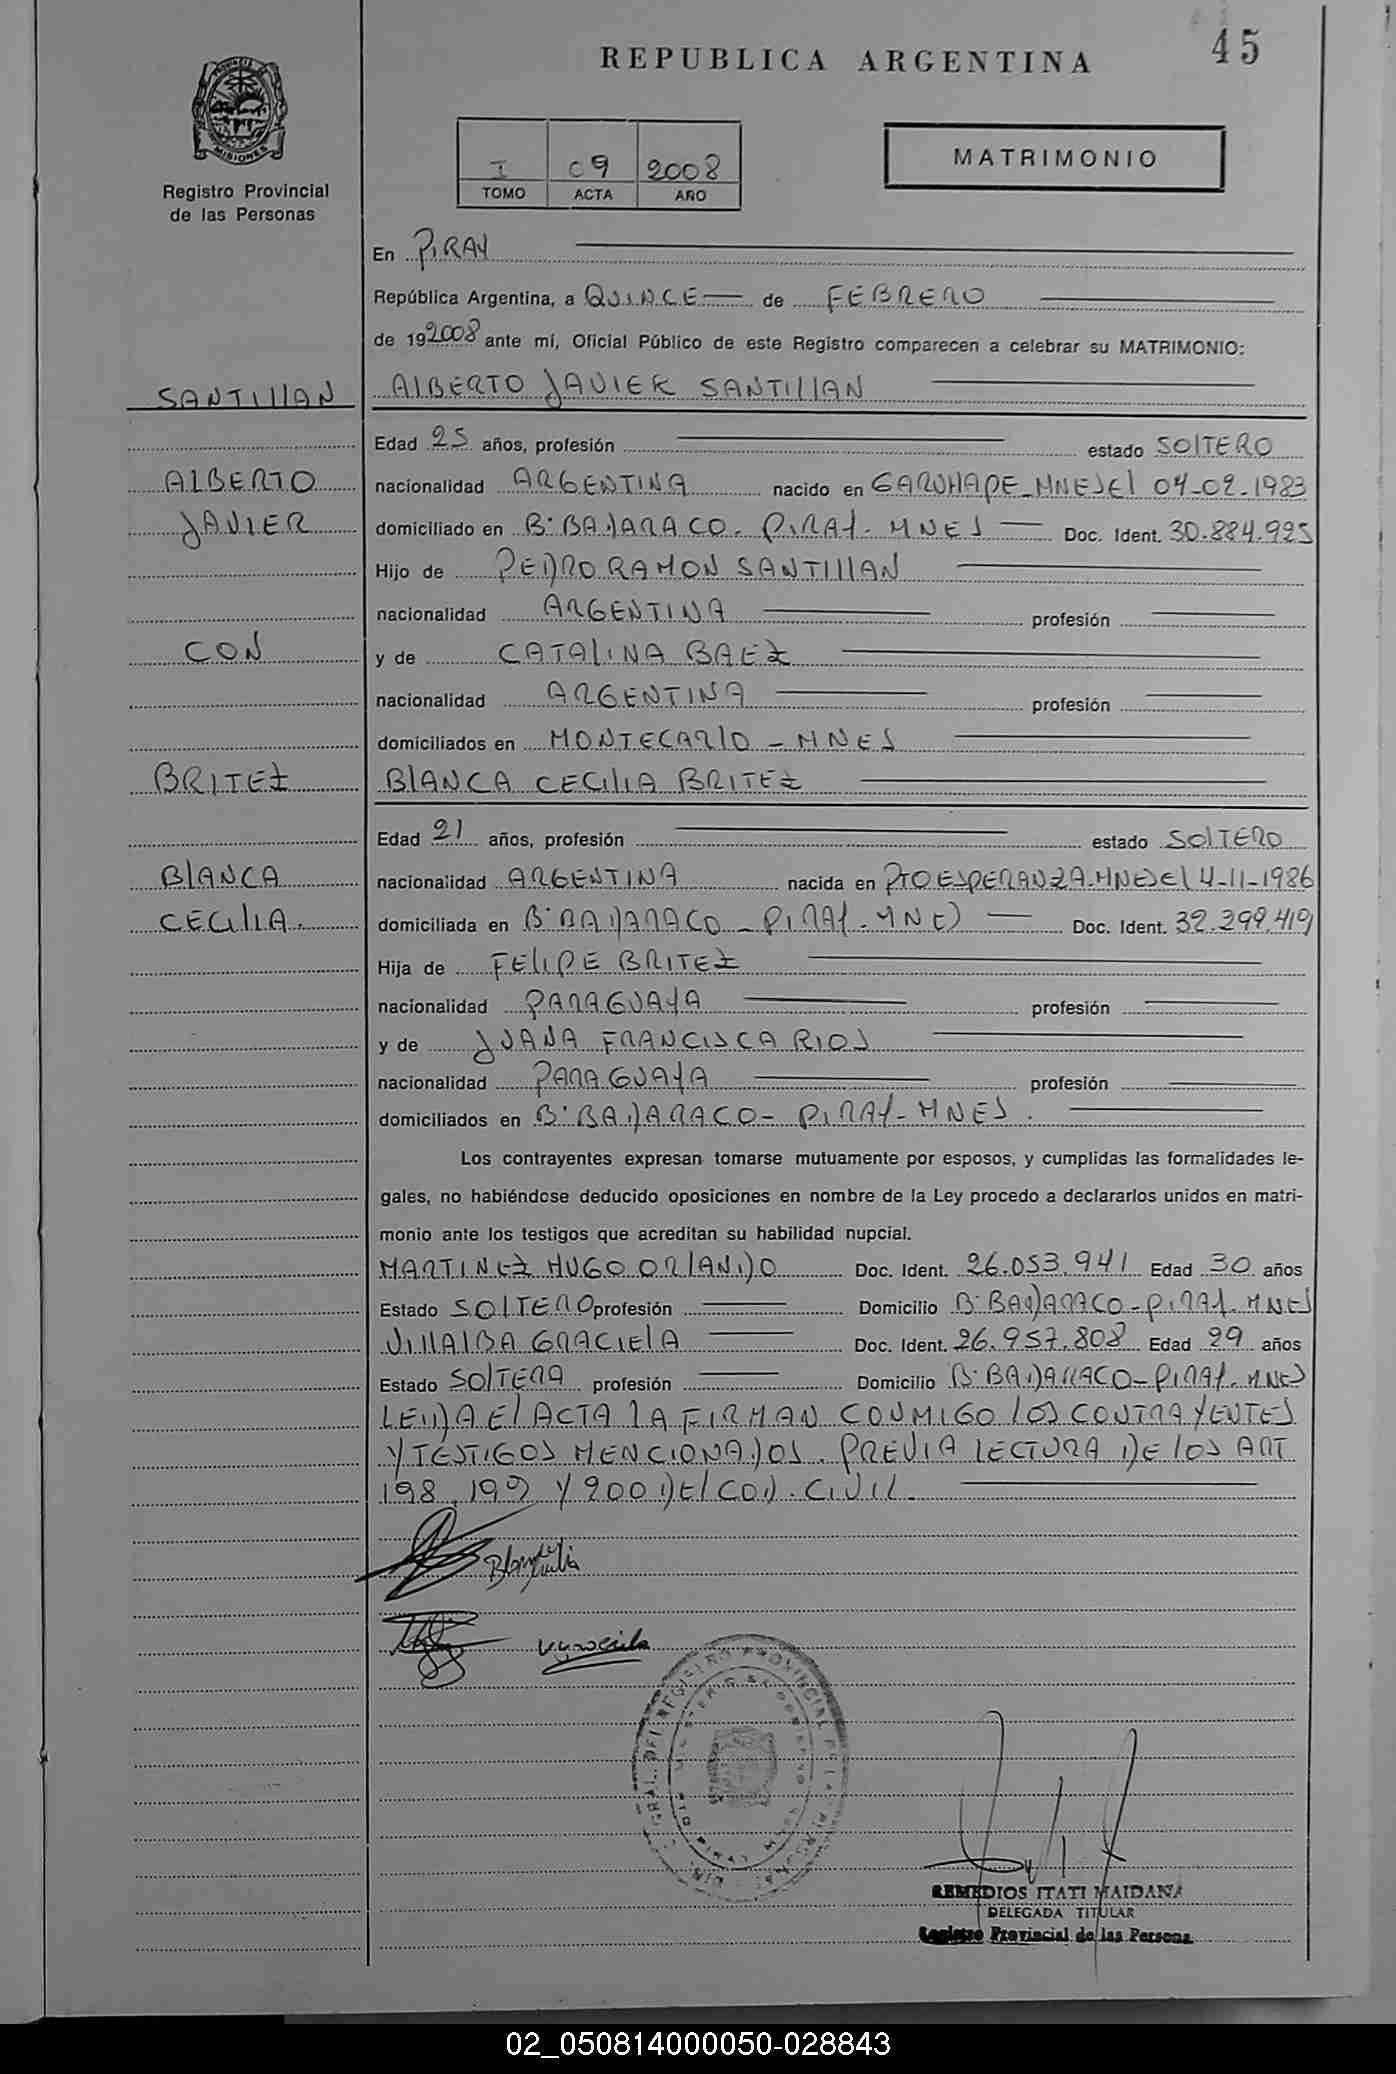 45
REPUBLICA ARGENTINA
PROVINCIA DE MISIONES
Registro Provincial
de las Personas
I 09 2008
TOMO ACTA AÑO
MATRIMONIO
En PIRAY
República Argentina, a QUINCE de FEBRERO
de 192008 ante mí, Oficial Público de este Registro comparecen a celebrar su MATRIMONIO:
SANTILLAN
ALBERTO JAVIER SANTILLAN
Edad 25 años, profesión estado SOLTERO
ALBERTO
nacionalidad ARGENTINA nacido en GARUHAPE-MNES el 04-02-1983
JAVIER
domiciliado en B: BAJARACO. PIRAY. MNES Doc. Ident. 30.884.925
Hijo de PEDRO RAMON SANTILLAN
nacionalidad ARGENTINA profesión
CON
y de CATALINA BAEZ
nacionalidad ARGENTINA profesión
domiciliados en MONTECARLO - MNES
BRITEZ
BLANCA CECILIA BRITEZ
Edad 21 años, profesión estado SOLTERO
BLANCA
nacionalidad ARGENTINA nacida en PTO ESPERANZA.MNES el 4-11-1986
CECILIA.
domiciliada en B: - PIRAY. MNES Doc. Ident. 32.299.419
Hija de FELIPE BRITEZ
nacionalidad PARAGUAYA profesión
y de JUANA FRANCISCA RIOS
nacionalidad PARAGUAYA profesión
domiciliados en B: - PIRAY - MNES.
Los contrayentes expresan tomarse mutuamente por esposos, y cumplidas las formalidades le-
gales, no habiéndose deducido oposiciones en nombre de la Ley procedo a declararlos unidos en matri-
monio ante los testigos que acreditan su habilidad nupcial.
MARTINEZ HUGO ORLANDO Doc. Ident. 26.053.941 Edad 30 años
Estado SOLTERO profesión Domicilio B: - PIRAY. MNES
VILLALBA GRACIELA Doc. Ident. 26.957.808 Edad 29 años
Estado SOLTERA profesión Domicilio B: - PIRAY. MNES
LEIDA EL ACTA LA FIRMAN CONMIGO LOS CONTRAYENTES
Y TESTIGOS MENCIONADOS. PREVIA LECTURA DE LOS ART
198, 199 Y 200 DEL COD. CIVIL.
REMEDIOS ITATI MAIDANA
DELEGADA TITULAR
Registro Provincial de las Persona
02_050814000050-028843